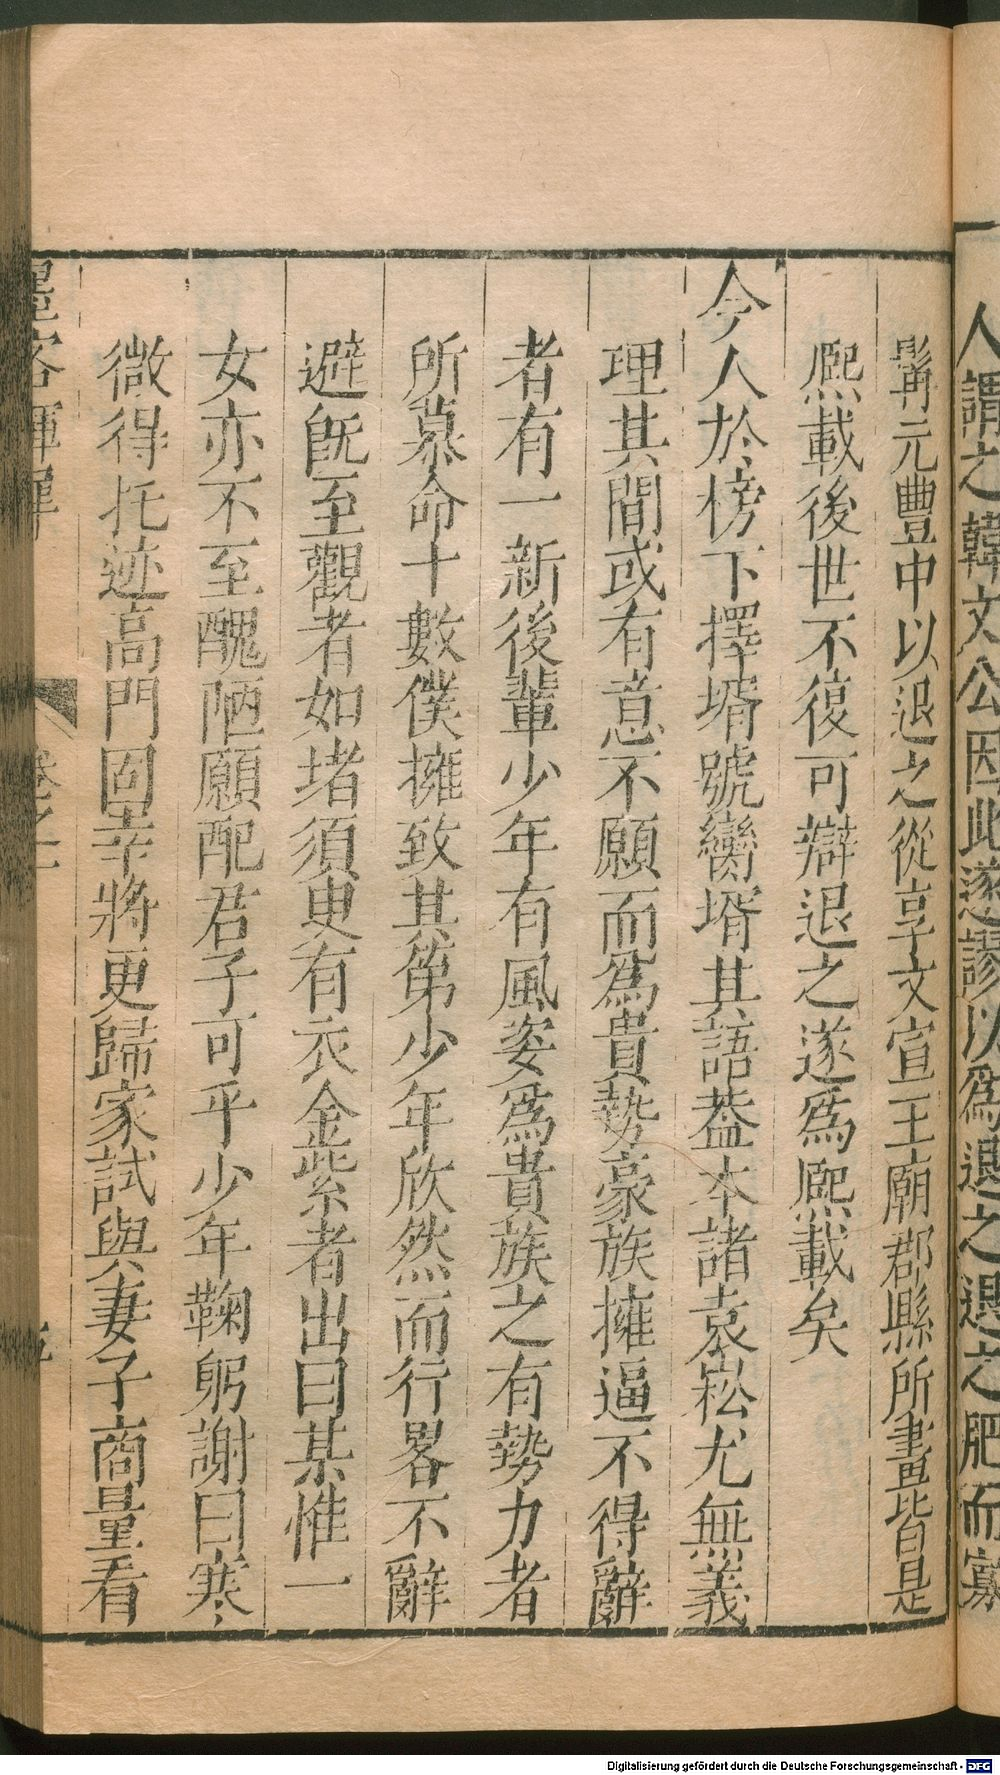 人謂之韓文公因此遂謬以爲退之退之肥而寡
髯元豐中以退之從享文宣王廟郡縣所畫皆是
熈載後世不復可辯退之遂爲熈載矣
今人於榜下擇壻號臠壻其語葢本諸袁崧尤無義
理其間或有意不願而爲貴勢豪族擁逼不得辭
者有一新後輩少年有風姿爲貴族之有勢力者
所慕命十數僕擁致其第少年欣然而行畧不辭
避旣至觀者如堵須臾有衣金紫者出曰某惟一
女亦不至醜陋願配君子可乎少年鞠躬謝曰寒
微得托迹高門固幸將更歸家試與妻子商量看
墨客揮犀 卷之一
Digitalisierung gefördert durch die Deutsche Forschungsgemeinschaft - DFG